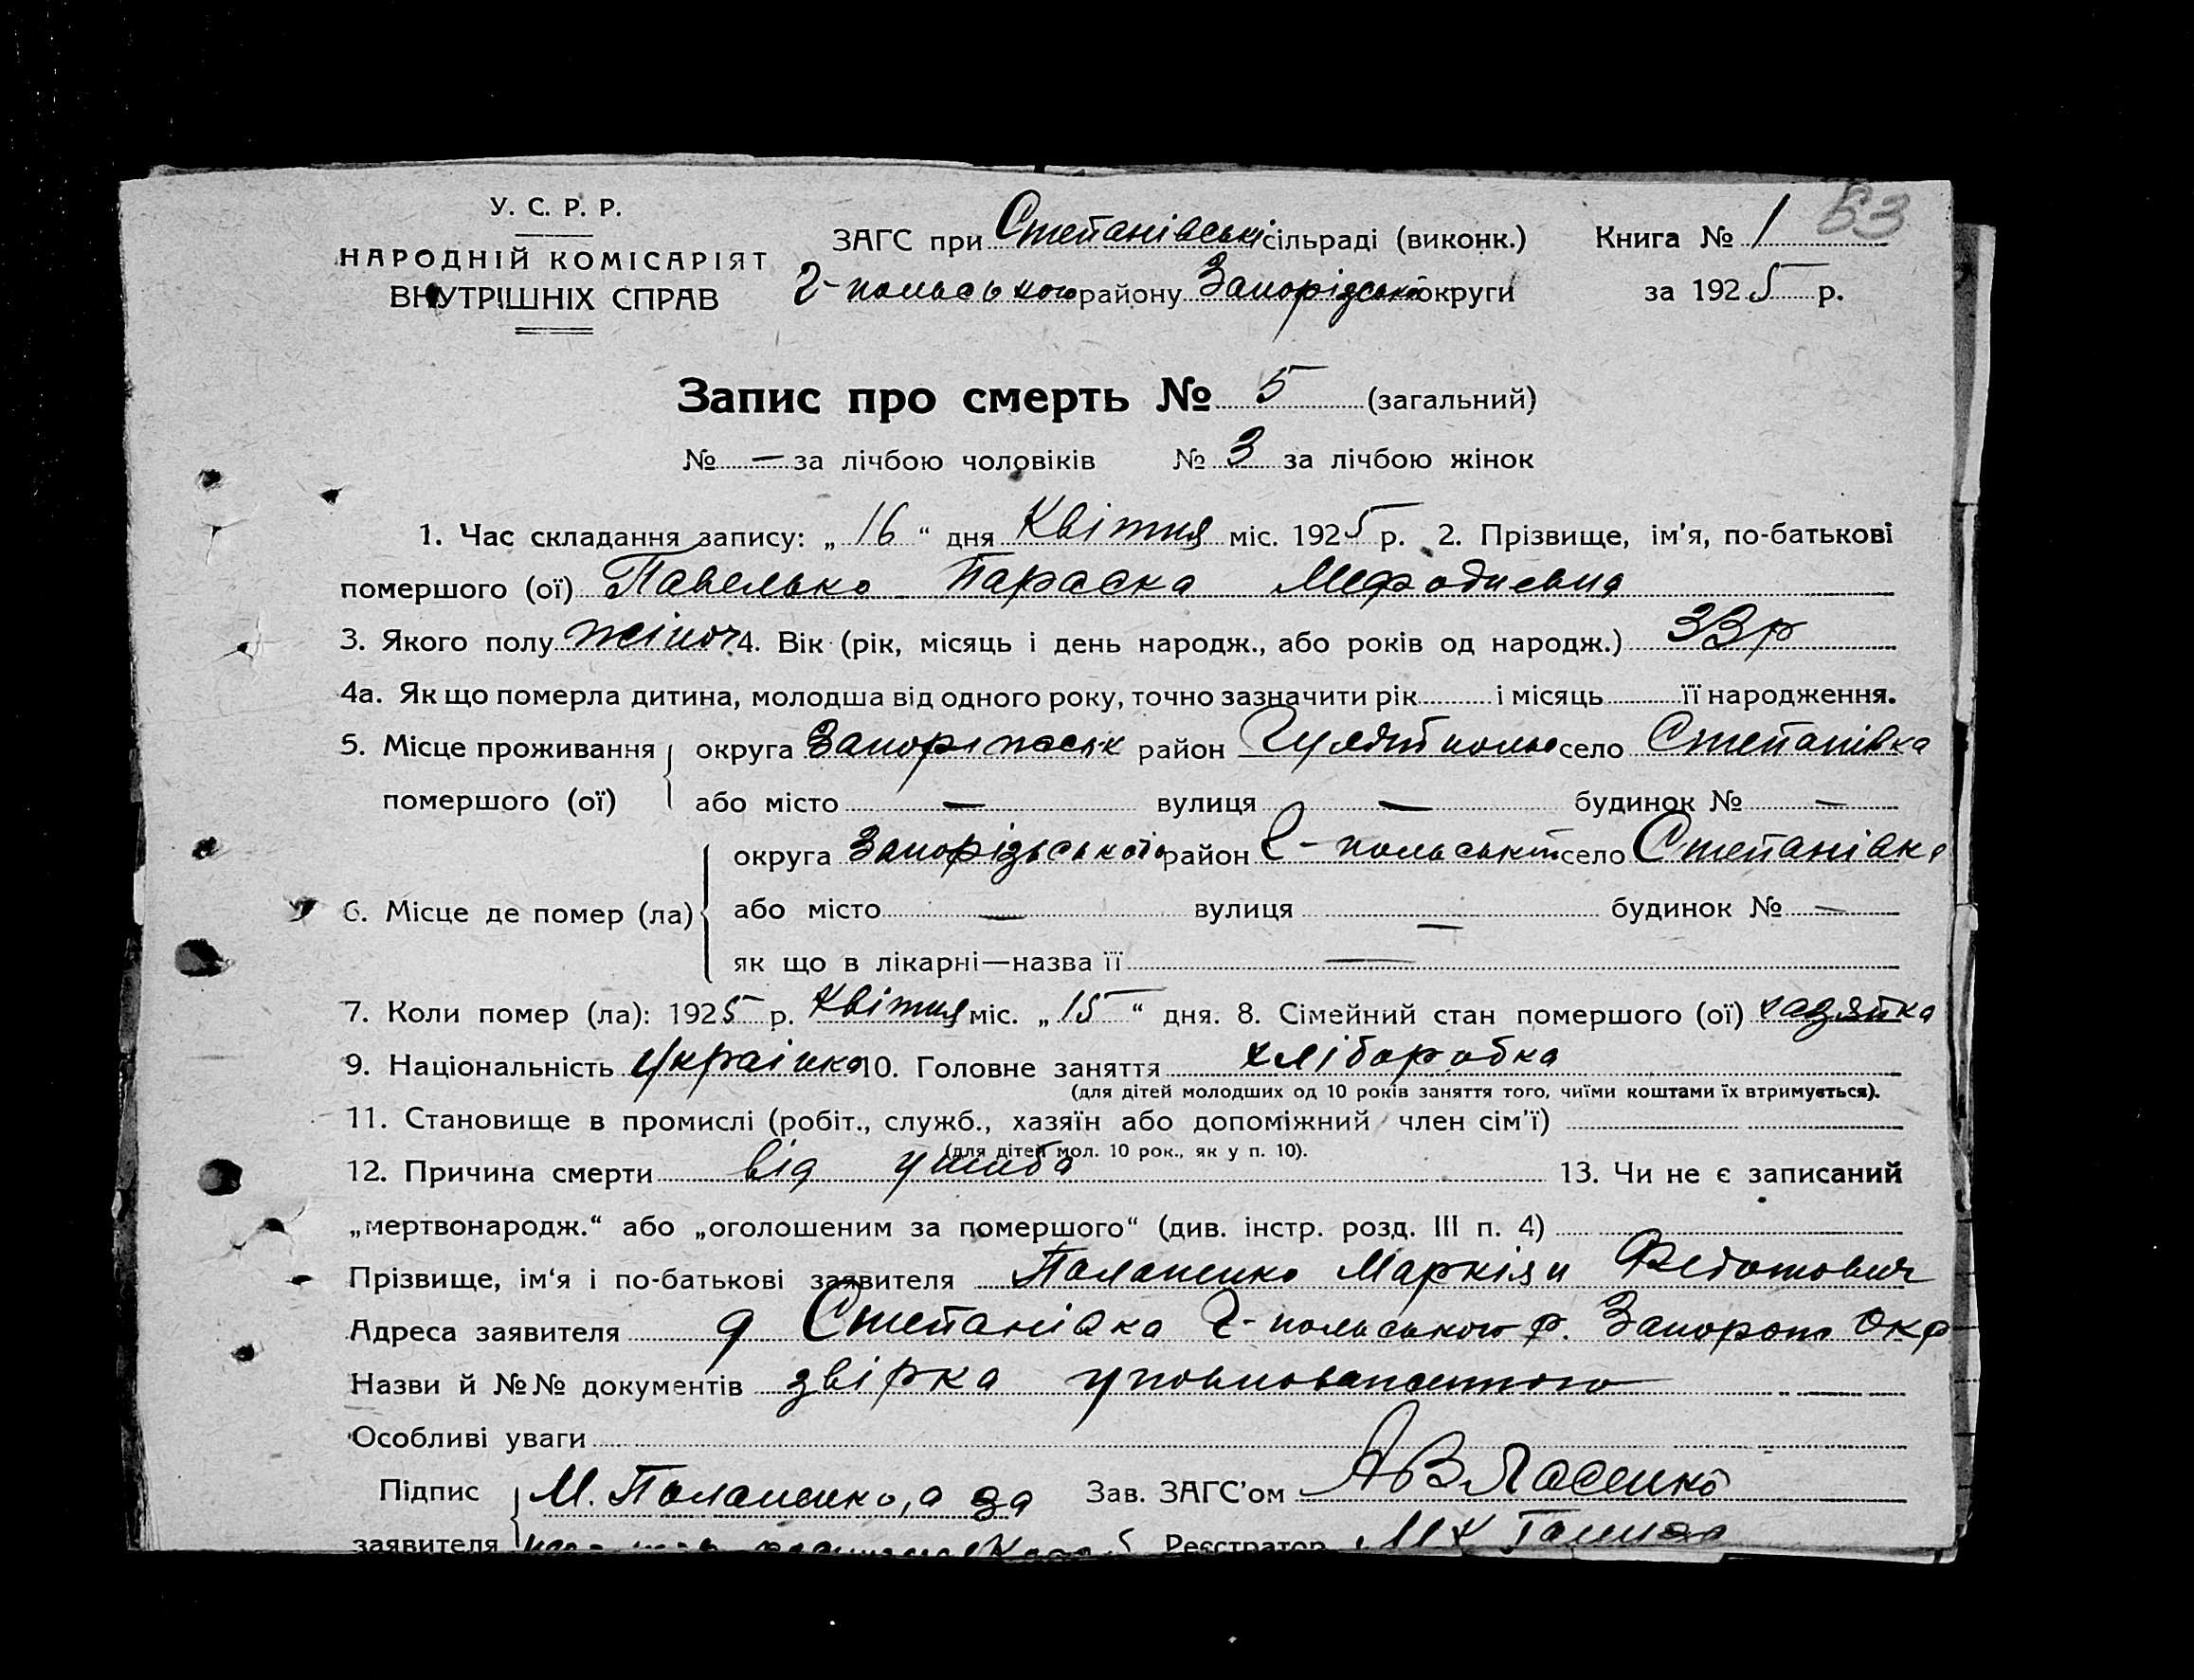 У. С. Р. Р.
НАРОДНІЙ КОМІСАРІЯТ
ВНУТРІШНІХ СПРАВ
ЗАГС при Степанівські сільраді (виконк.) Книга № 1 53
Г-польського району Запорізської округи за 1925 р.
Запис про смерть № 5 (загальний)
№ — за лічбою чоловіків № 3 за лічбою жінок
1. Час складання запису: „ 16 “ дня Квітня міс. 1925 р. 2. Прізвище, ім'я, по-батькові
помершого (ої) Павелько Параска Мефодиевна
3. Якого полу жіноч 4. Вік (рік, місяць і день народж., або років од народж.) 33 р
4а. Як що померла дитина, молодша від одного року, точно зазначити рік і місяць її народження.
5. Місце проживання округа Запоріжськ район Гуляйполь село Степанівка
помершого (ої) або місто — вулиця — будинок № —
округа Запорізьського район Г-польський село Степанівка
6. Місце де помер (ла) або місто — вулиця — будинок № —
як що в лікарні—назва її —
7. Коли помер (ла): 1925 р. Квітня міс. „ 15 “ дня. 8. Сімейний стан помершого (ої) хазяйка
9. Національність Українка 10. Головне заняття хліборобка
(для дітей молодших од 10 років заняття того, чиїми коштами їх втримується).
11. Становище в промислі (робіт., служб., хазяїн або допоміжний член сім'ї)
(для дітей мол. 10 рок., як у п. 10).
12. Причина смерти від ушиба 13. Чи не є записаний
„мертвонародж.“ або „оголошеним за помершого“ (див. інстр. розд. III п. 4)
Прізвище, ім'я і по-батькові заявителя Маркіян Федотович
Адреса заявителя д Степанівка Г-польського р. Запорож Окр
Назви й №№ документів звірка уповноваженного
Особливі уваги
Підпис М. а за Зав. ЗАГС'ом А Власенко
заявителя Реєстратор